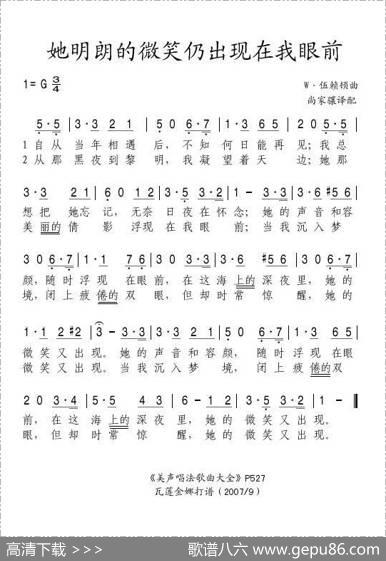 她明朗的微笑仍出现在我眼前
1=G 3/4
W·伍赖顿曲
尚家骧译配
5·5 | 3·3 2 1 | 5 0 6·7 | 1·3 5·4 | 2 0 5·5 |
1自从 当年相遇 后,不知 何日能再 见;我总
2从那 黑夜到黎 明,我凝 望着天 边;她那
3·3 2 1 | 6 0 1 2 | 3·5 4·2 | 1 - 3·3 | 3·6 #5 6 |
想把 她忘 记,无奈 日夜在怀 念;她的 声音和容
美丽的 倩 影 浮现 在我眼 前;当我 沉入梦
颜,随时 浮现 在眼 前,在这 海上的 深夜 里,她的
境,闭上 疲倦的 双 眼,但却 时常 惊 醒,她的
微笑又出 现。她的 声音和容 颜, 随时 浮现 在眼
微笑又出 现。当我 沉入梦 境, 闭上 疲倦的 双
2 0 3·4 | 5 5 1 2 | 3 0 3·3 | 3·5 4·2 | 1 0
前,在这 海上的 深夜 里,她的 微笑又出 现。
眼,但却 时常 惊 醒,她的 微笑又出 现。
《美声唱法歌曲大全》P527
瓦莲金娜打谱(2007/9)
高清下载 >>>
歌谱八六 www.gepu86.com